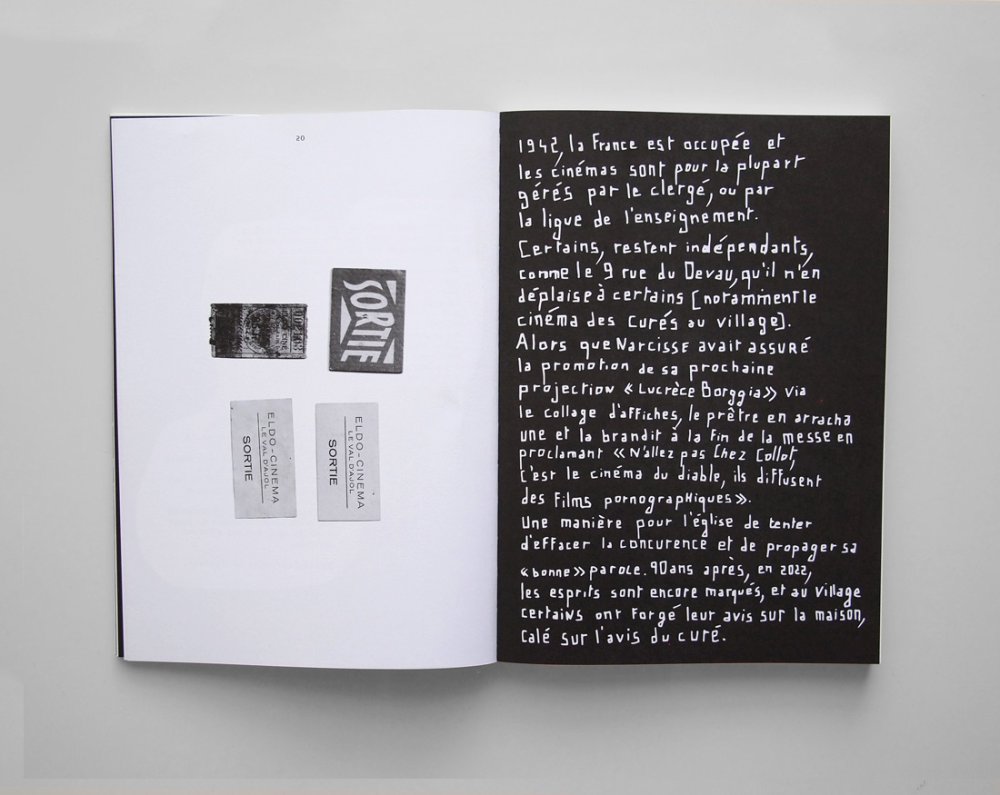 20
SORTIE
ELDO-CINEMA
LE VAL D'AJOL
SORTIE
ELDO-CINEMA
LE VAL D'AJOL
SORTIE
1942, la France est occupée et
les cinémas sont pour la plupart
gérés par le clergé, ou par
la ligue de l'enseignement.
Certains, restent indépendants,
comme le 9 rue du Devau, qu'il n'en
déplaise à certains [notamment le
cinéma des curés au village].
Alors que Narcisse avait assuré
la promotion de sa prochaine
projection «Lucrèce Borggia» via
le collage d'affiches, le prêtre en arracha
une et la brandit à la fin de la messe en
proclamant «N'allez pas Chez Collot,
C'est le cinéma du diable, ils diffusent
des films pornographiques».
Une manière pour l'église de tenter
d'effacer la concurence et de propager sa
«bonne» parole. 90 ans après, en 2022,
les esprits sont encore marqués, et au village
certains ont forgé leur avis sur la maison,
calé sur l'avis du curé.